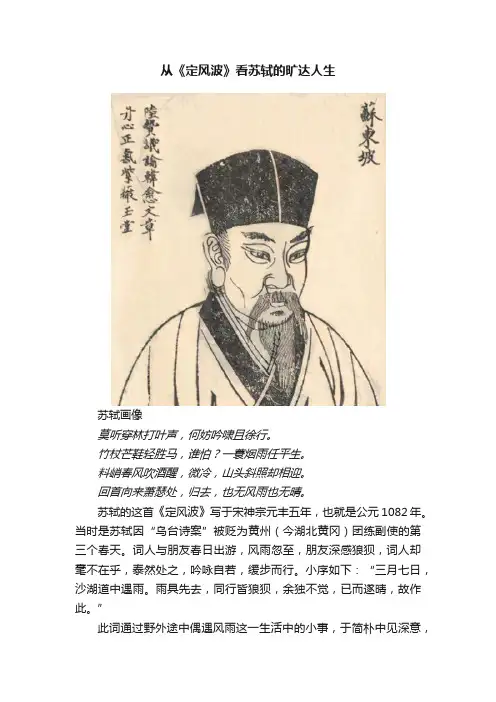 从《定风波》看苏轼的旷达人生
蘇東坡
陸贄議論韓愈文章
丹心正氣紫玉堂
苏轼画像
莫听穿林打叶声，何妨吟啸且徐行。
竹杖芒鞋轻胜马，谁怕？一蓑烟雨任平生。
料峭春风吹酒醒，微冷，山头斜照却相迎。
回首向来萧瑟处，归去，也无风雨也无晴。
苏轼的这首《定风波》写于宋神宗元丰五年，也就是公元1082年。
当时是苏轼因“乌台诗案”被贬为黄州（今湖北黄冈）团练副使的第
三个春天。词人与朋友春日出游，风雨忽至，朋友深感狼狈，词人却
毫不在乎，泰然处之，吟咏自若，缓步而行。小序如下：“三月七日，
沙湖道中遇雨。雨具先去，同行皆狼狈，余独不觉，已而遂晴，故作
此。”
此词通过野外途中偶遇风雨这一生活中的小事，于简朴中见深意，